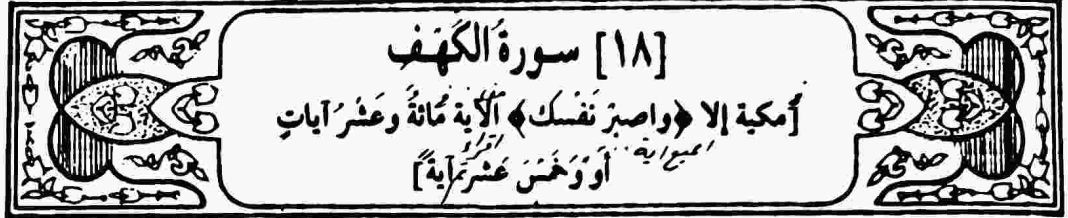 [١٨] سورة الكهف
[مكية إلا ﴿واصبر نَفْسك﴾ الآية مائةٌ وعَشْر آياتٍ
أَو وَخَمْسَ عَشْرَةَ آيةً]